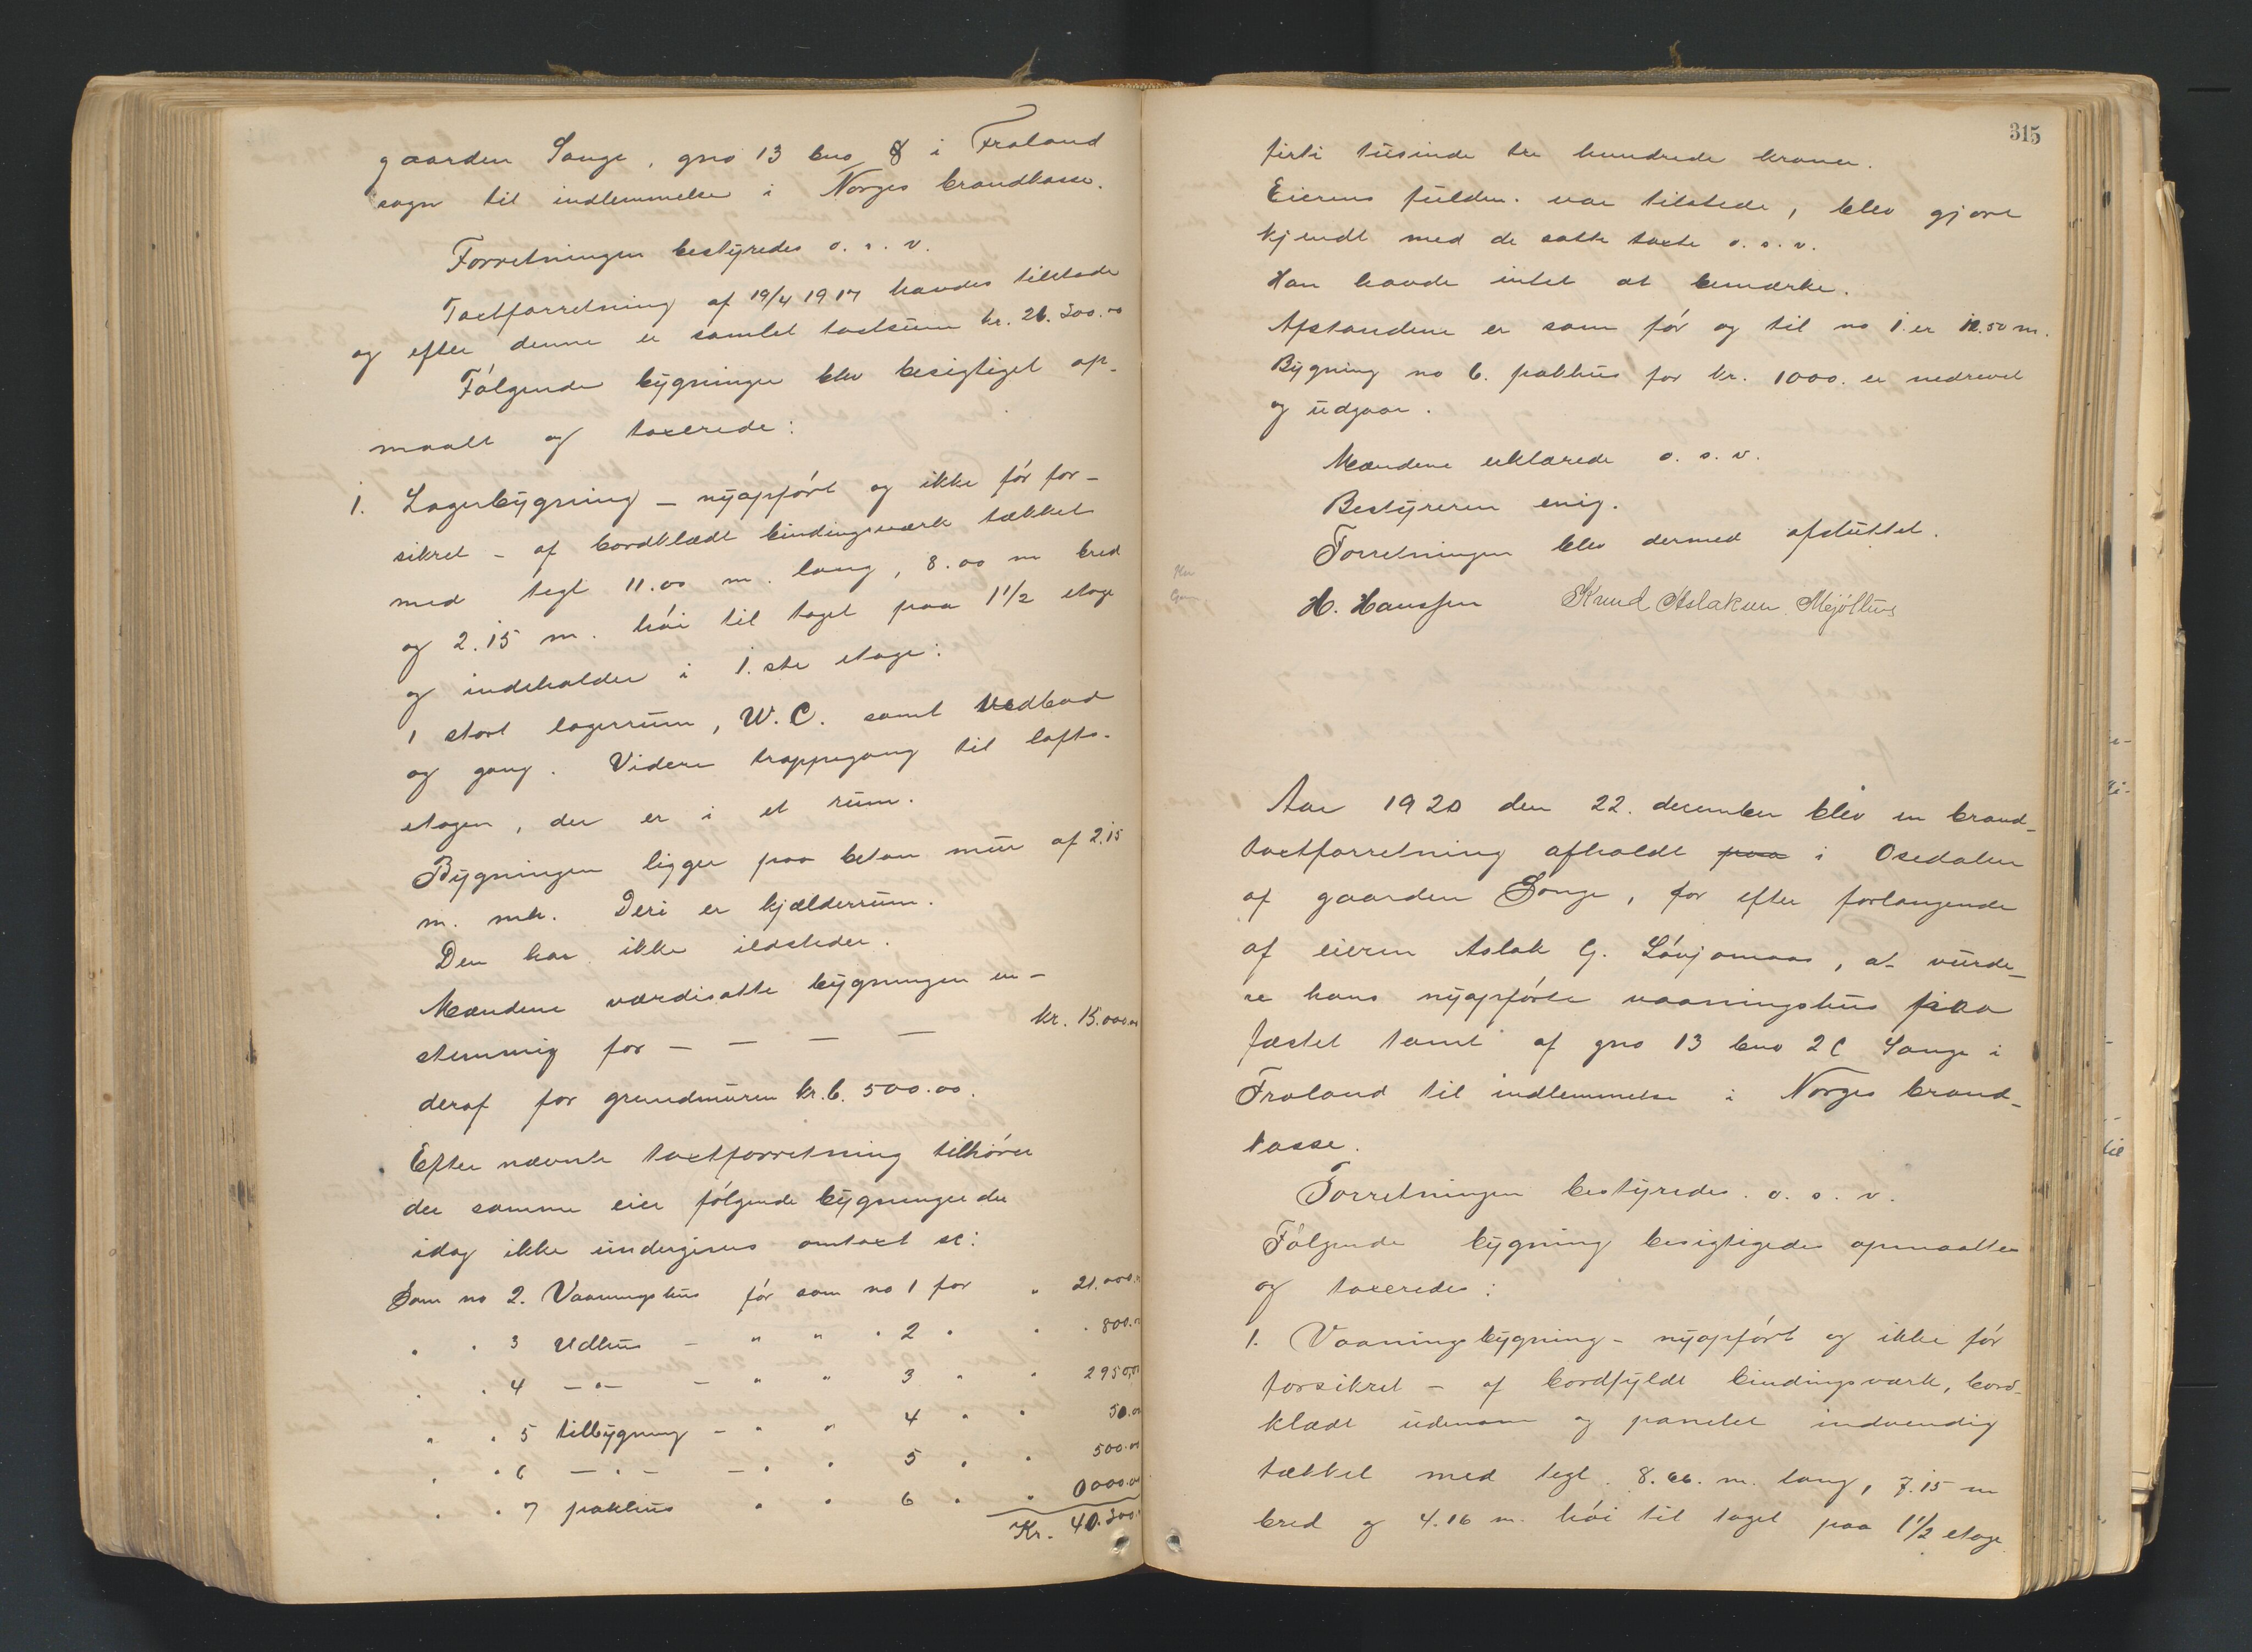 gaarden Songe, gno 13 bno 8 i Froland
sogn til indlemmelse i Norges brandkasse.
Forretningen bestyredes o. s. v.
Taxtforretning af 19/4 1917 havdes tilstede
og efter denne er samlet taxtsum kr. 26.300.00
Følgende bygninger blev besigtiget op-
maalt og taxerede:
1. Lagerbygning - nyopført og ikke før for-
sikret - af bordklædt bindingsværk tækket
med tegl 11.00 m. lang, 8.00 m bred
og 2.15 m. høi til taget paa 1 1/2 etage
og indeholder i 1.ste etage:
1 stort lagerrum, W.C. samt vedbod
og gang. Videre trappegang til lofts-
etagen, der er i et rum.
Bygningen ligger paa beton mur af 2.15
m. mh. Deri er kjælderrum.
Den har ikke ildsteder.
Mændene værdisatte bygningen en-
stemmig for — — — — kr. 15.000.00
deraf for grundmuren kr. 6.500.00.
Efter nævnte taxtforretning tilhører
der samme eier følgende bygninger der
idag ikke undergives omtaxt se:
Som no 2. Vaaningshus før som no 1 for " 21.000.00
" " 3 Udhus - " " " 2 " " " 800.00
" " 4 —"— - " " 3 " " 2950,00
" " 5 tilbygning - " " 4 " " 50.00
" " 6 —"— - " " 5 " " 500.00
" " 7 pakhus " " 6 " " 0000.00
Kr. 40.300.
315
firti tusinde tre hundrede kroner.
Eierens fuldm. var tilstede, blev gjort
kjendt med de satte taxte o. s. v.
Han havde intet at bemærke.
Afstandene er som før og til no 1 er 12.50 m.
Bygning no 6. pakhus for kr. 1000. er nedrevet
og udgaar.
Mændene erklærede o. s. v.
Bestyreren enig.
Forretningen blev dermed afsluttet.
H. Hanssen Knud Aslaksen Mjølhus
Aar 1920 den 22. december blev en brand-
taxtforretning afholdt paa i Osedalen
af gaarden Songe, for efter forlangende
af eieren Aslak G. Løvjomaas, at vurde-
re hans nyopførte vaaningshus paa
fæstet tomt af gno 13 bno 2 C Songe i
Froland til indlemmelse i Norges brand-
kasse.
Forretningen bestyredes. o. s. v.
Følgende bygning besigtigedes opmaaltes
og taxeredes:
1. Vaaningsbygning - nyopført og ikke før
forsikret - af bordfyldt bindingsværk, bord-
klædt udenom og panelet indvendig
tækket med tegl. 8.66. m. lang, 7.15 m
bred og 4.16 m. høi til taget paa 1 1/2 etage